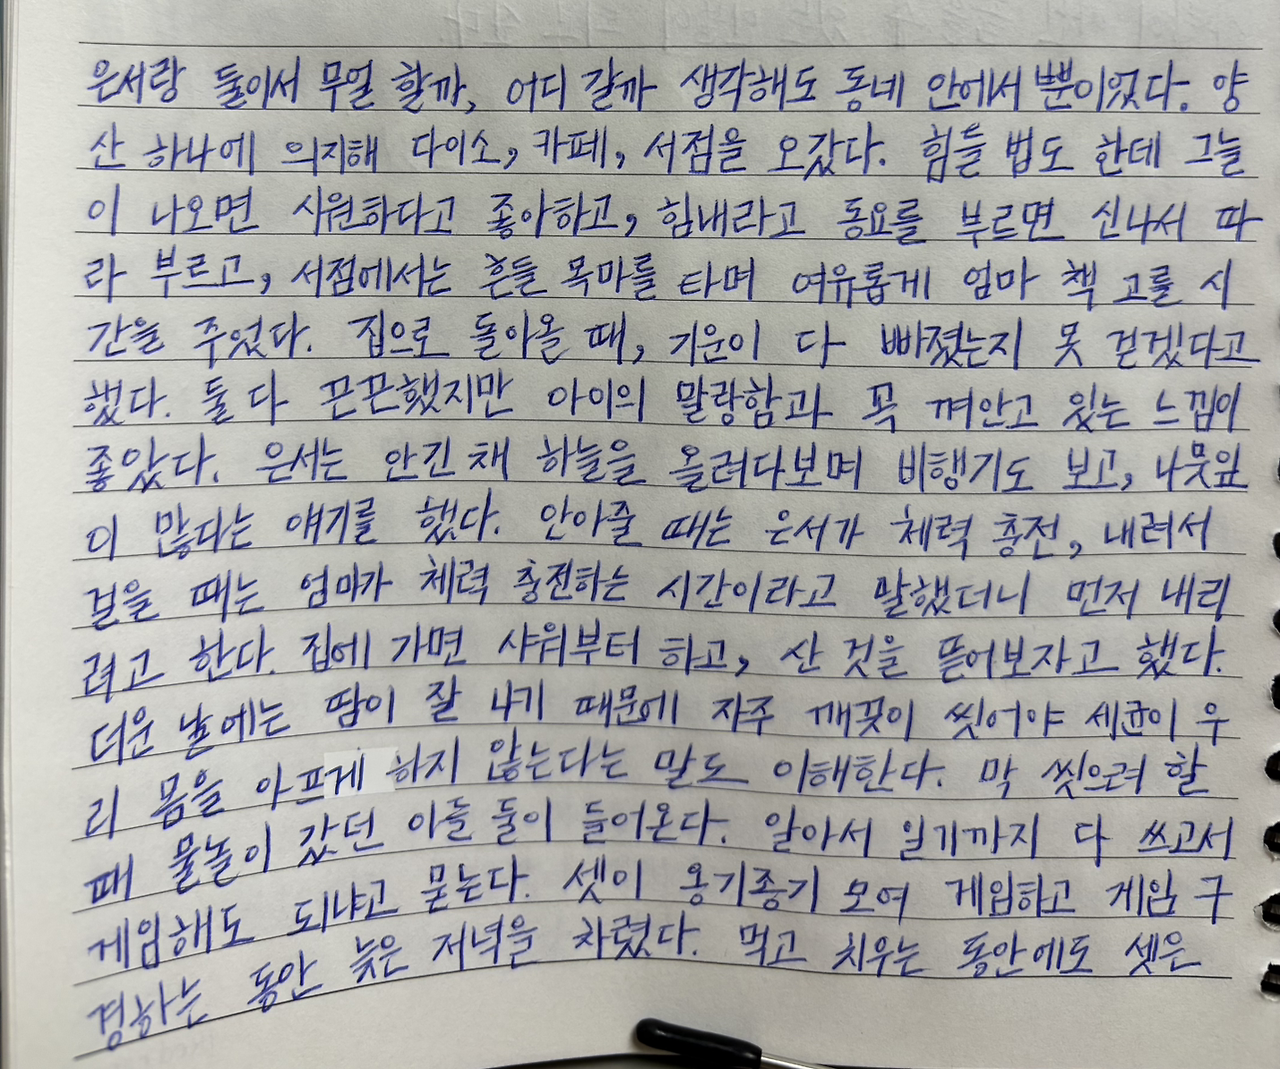 은서랑 둘이서 무얼 할까, 어디 갈까 생각해도 동네 안에서뿐이었다. 양
산 하나에 의지해 다이소, 카페, 서점을 오갔다. 힘들 법도 한데 그늘
이 나오면 시원하다고 좋아하고, 힘내라고 동요를 부르면 신나서 따
라 부르고, 서점에서는 흔들 목마를 타며 여유롭게 엄마 책 고를 시
간을 주었다. 집으로 돌아올 때, 기운이 다 빠졌는지 못 걷겠다고
했다. 둘 다 끈끈했지만 아이의 말랑함과 꼭 껴안고 있는 느낌이
좋았다. 은서는 안긴 채 하늘을 올려다보며 비행기도 보고, 나뭇잎
이 많다는 얘기를 했다. 안아줄 때는 은서가 체력 충전, 내려서
걸을 때는 엄마가 체력 충전하는 시간이라고 말했더니 먼저 내리
려고 한다. 집에 가면 샤워부터 하고, 산 것을 뜯어보자고 했다.
더운 날에는 땀이 잘 나기 때문에 자주 깨끗이 씻어야 세균이 우
리 몸을 아프게 하지 않는다는 말도 이해한다. 막 씻으려 할
때 물놀이 갔던 이들 둘이 들어온다. 알아서 일기까지 다 쓰고서
게임해도 되냐고 묻는다. 셋이 옹기종기 모여 게임하고 게임 구
경하는 동안 늦은 저녁을 차렸다. 먹고 치우는 동안에도 셋은